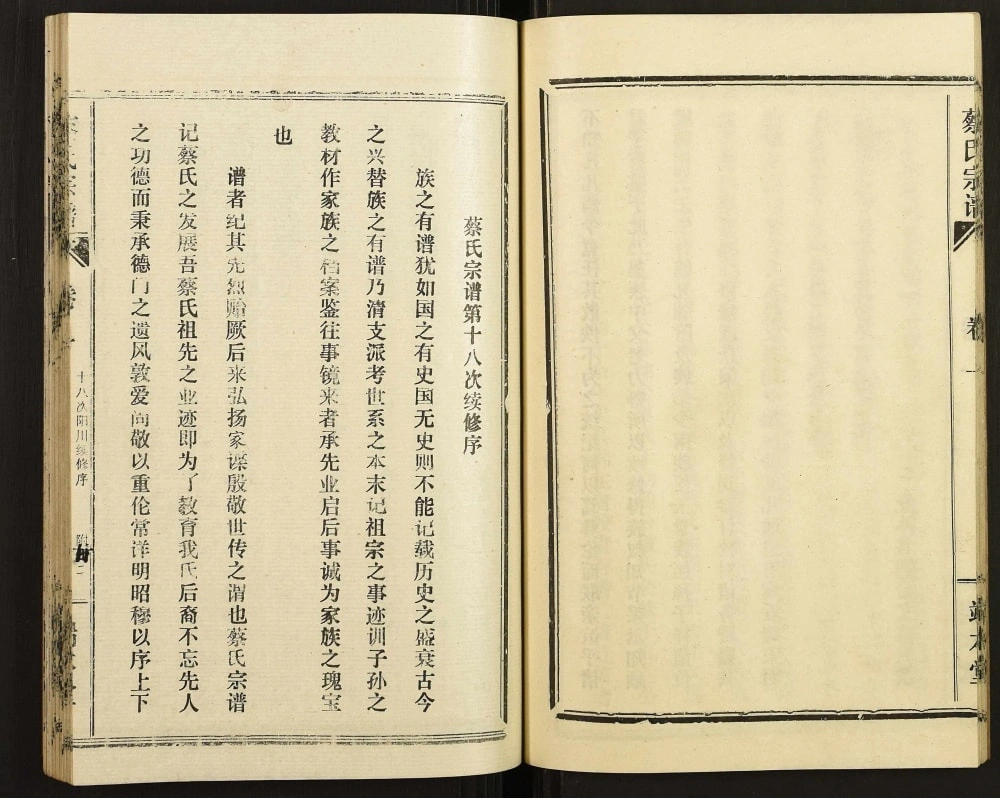 蔡氏宗谱
卷
一
端本堂
蔡氏宗谱第十八次续修序
族之有谱犹如国之有史国无史则不能记载历史之盛衰古今
之兴替族之有谱乃清支派考世系之本末记祖宗之事迹训子孙之
教材作家族之档案鉴往事镜来者承先业启后事诚为家族之瑰宝
也
谱者纪其先烈贻厥后来弘扬家谍殷敬世传之谓也蔡氏宗谱
记蔡氏之发展吾蔡氏祖先之业迹即为了教育我氏后裔不忘先人
之功德而秉承德门之遗风敦爱尚敬以重伦常详明昭穆以序上下
氏宗谱
卷
一
十八次阳川续修序